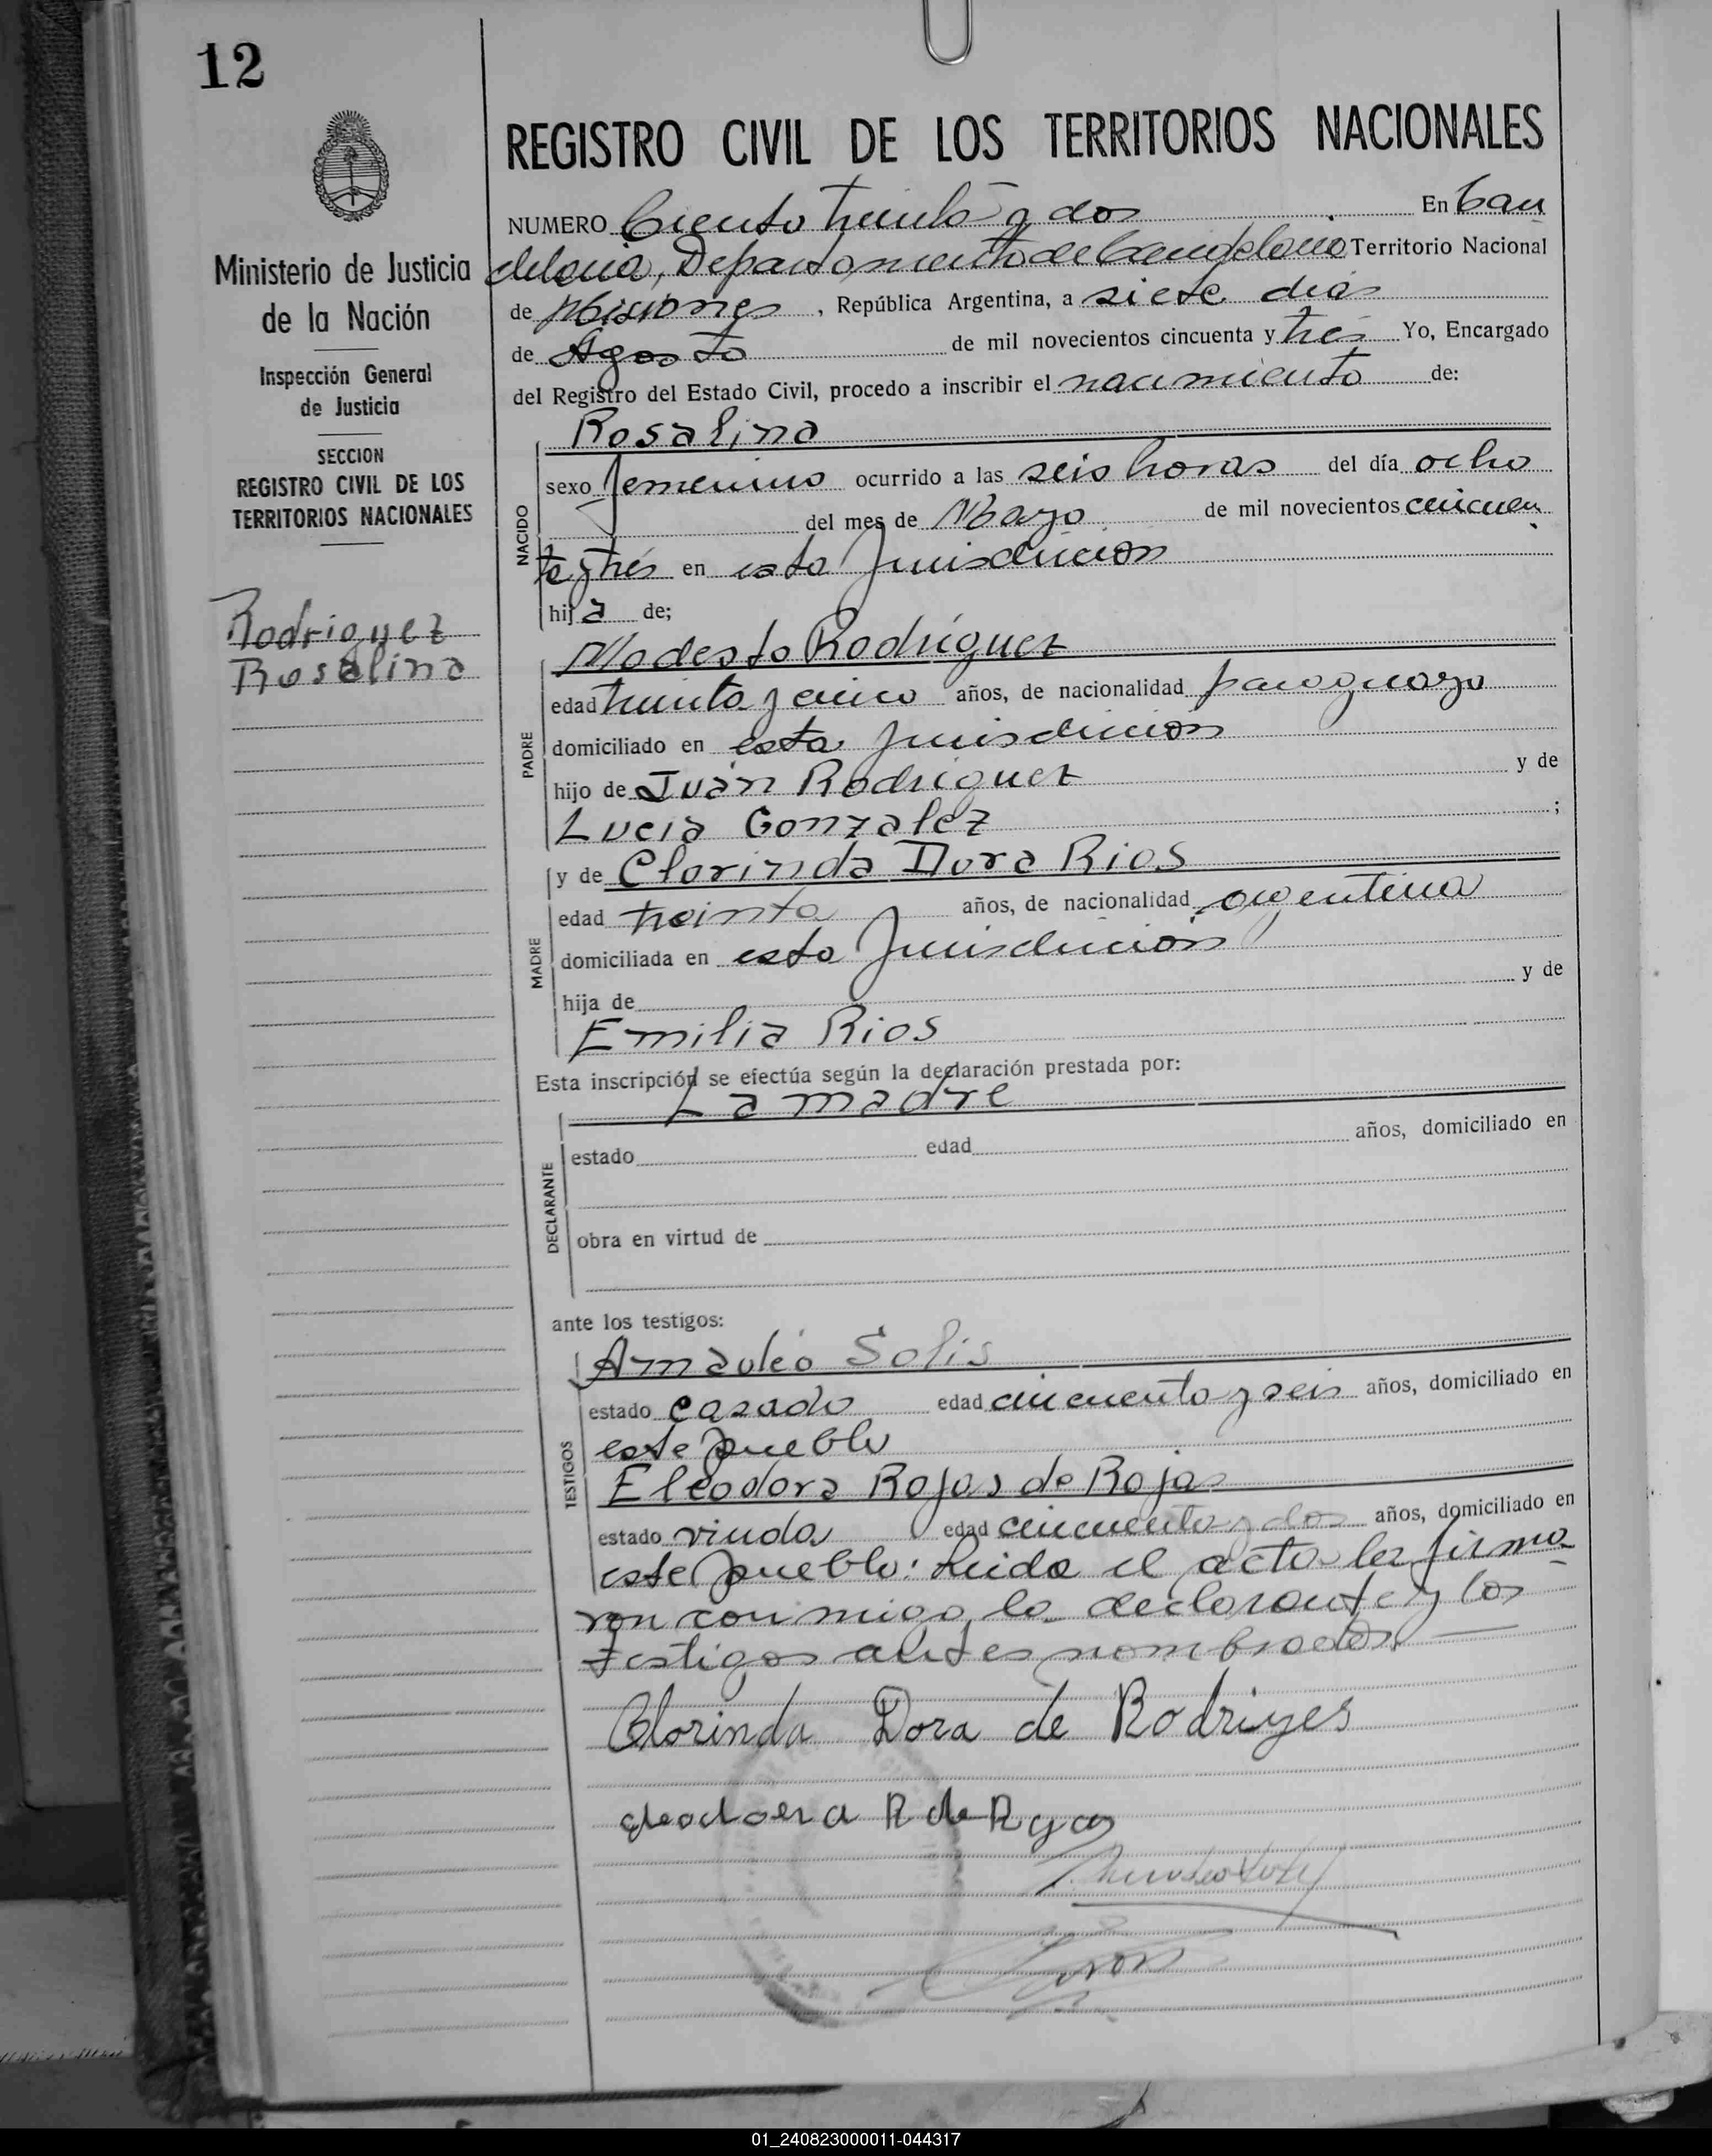 12
REGISTRO CIVIL DE LOS TERRITORIOS NACIONALES
Ministerio de Justicia
de la Nación
Inspección General
de Justicia
SECCION
REGISTRO CIVIL DE LOS
TERRITORIOS NACIONALES
Rodriguez
Rosalina
NUMERO Ciento treinta y dos En Can
delaria, Departamento de Candelaria Territorio Nacional
de Misiones, República Argentina, a siete dias
de Agosto de mil novecientos cincuenta y tres Yo, Encargado
del Registro del Estado Civil, procedo a inscribir el nacimiento de:
NACIDO
Rosalina
sexo femenino ocurrido a las seis horas del día ocho
del mes de Mayo de mil novecientos cincuen
ta y tres en esta Jurisdiccion
hija de;
PADRE
Modesto Rodriguez
edad treinta y cinco años, de nacionalidad paraguayo
domiciliado en esta Jurisdiccion
hijo de Juan Rodriguez y de
Lucia Gonzalez ;
MADRE
y de Clorinda Dora Rios
edad treinta años, de nacionalidad argentina
domiciliada en esta Jurisdiccion
hija de y de
Emilia Rios
Esta inscripción se efectúa según la declaración prestada por:
La madre
DECLARANTE
estado edad años, domiciliado en
obra en virtud de
ante los testigos:
TESTIGOS
Amadeo Solis
estado casado edad cincuenta y seis años, domiciliado en
este pueblo
Eleodora Rojas de Rojas
estado viuda edad cincuenta y dos años, domiciliado en
este pueblo: Leida el acta la firma
ron conmigo la declarante y los
testigos antes nombrados
Clorinda Dora de Rodriges
eleodoera R de R
01_240823000011-044317